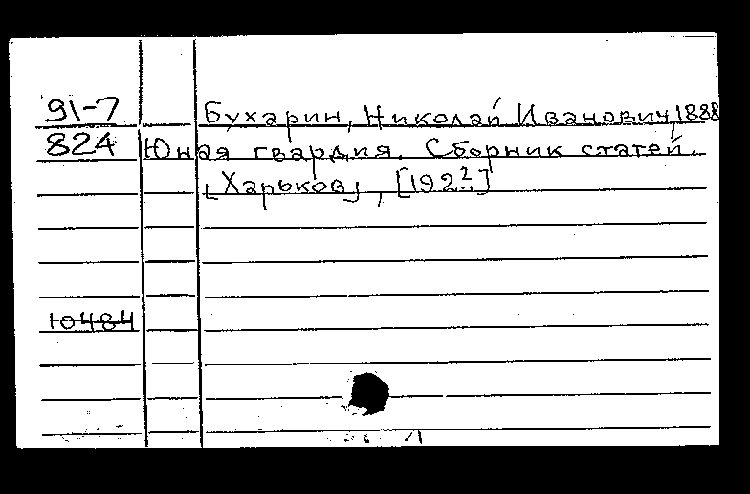 91-7 Бухарин, Николай Иванович, 1888
824 Юная гвардия. Сборник статей.
[Харьков], [192?]
10484